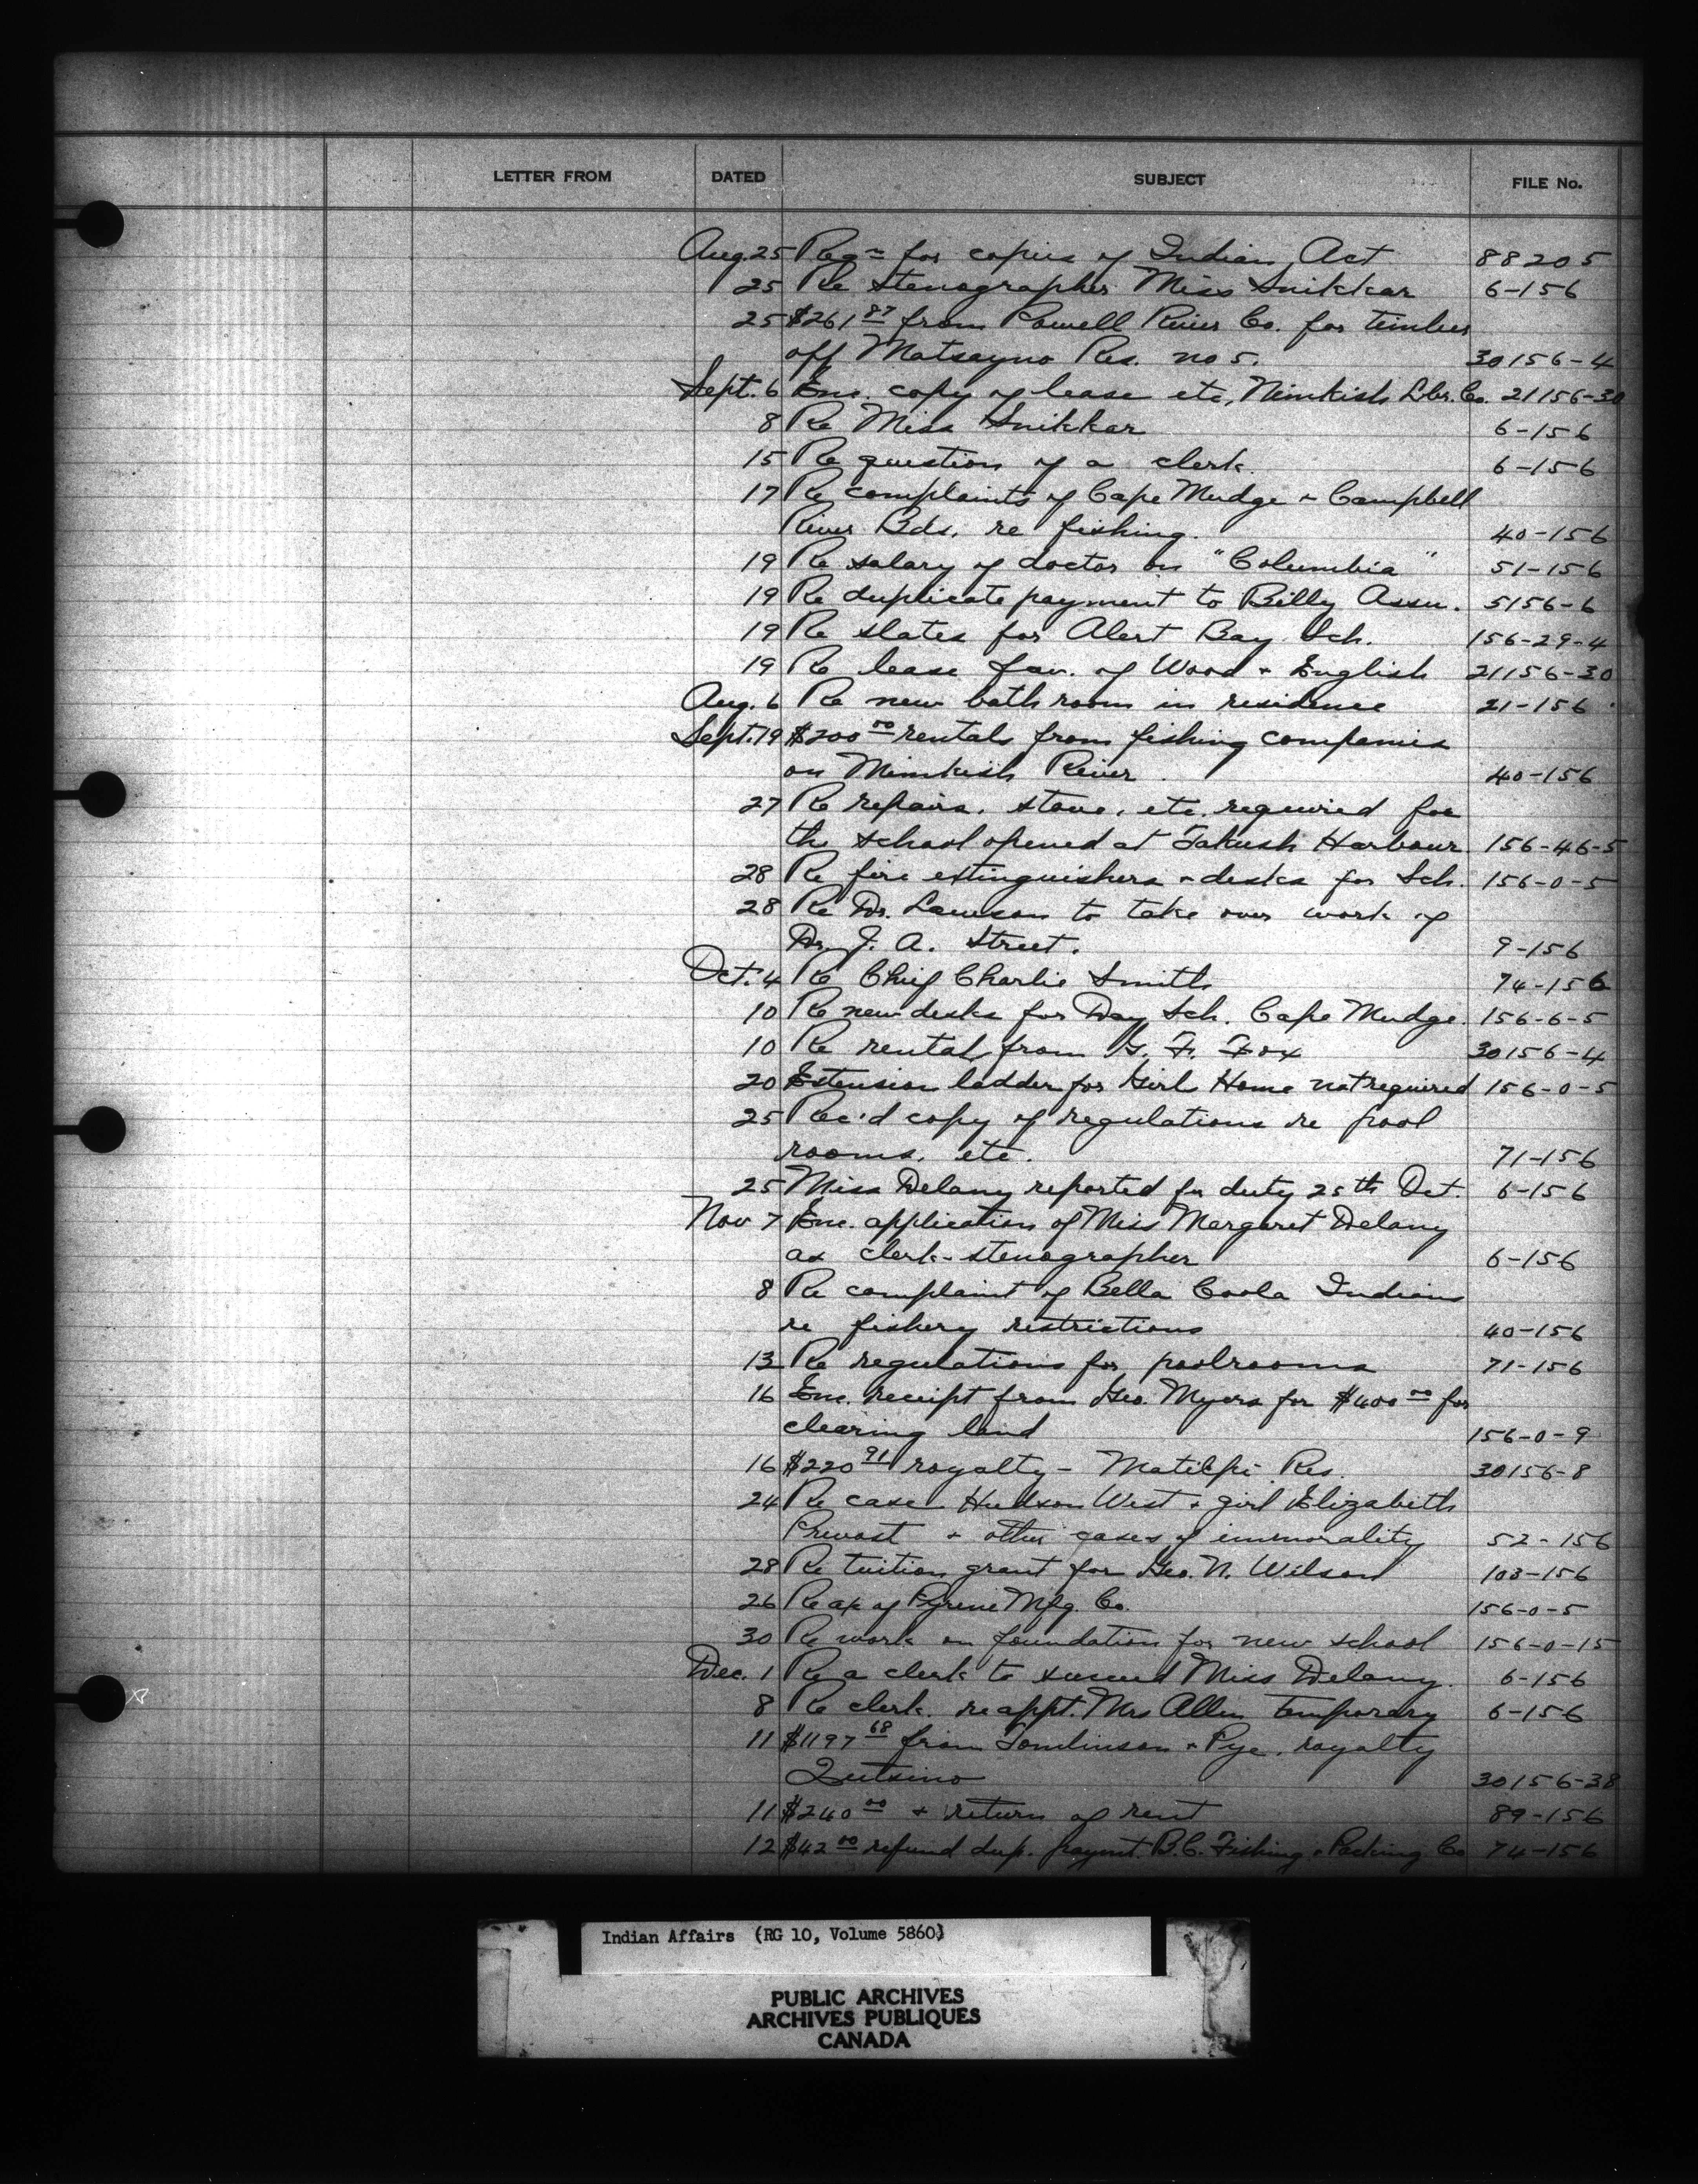 LETTER FROM DATED SUBJECT FILE No.
Aug. 25 Reqn for copies of Indian Act 88205
25 Re stenographer Miss Snikkar 6-156
25 $261 87 from Powell River Co. for timber
off Matsayno Res. no 5. 30156-4
Sept. 6 Enc. copy of lease etc, Nimkish Lbr. Co. 21156-30
8 Re Miss Snikkar 6-156
15 Re question of a clerk. 6-156
17 Re complaints of Cape Mudge + Campbell
River Bds. re fishing. 40-156
19 Re salary of doctor on "Columbia" 51-156
19 Re duplicate payment to Billy Assu. 5156-6
19 Re slates for Alert Bay Sch. 156-29-4
19 Re lease fav. of Wood + English 21156-30
Aug. 6 Re new bathroom in residence 21-156
Sept. 19 $200 00 rentals from fishing companies
on Nimkish River. 40-156
27 Re repairs, stove, etc. required for
the school opened at Takush Harbour 156-46-5
28 Re fire extinguishers + desks for Sch. 156-0-5
28 Re Dr. Lawson to take over work of
Dr. J. A. Street. 9-156
Oct. 4 Re Chief Charlie Smith 74-156
10 Re new desks for Day Sch. Cape Mudge. 156-6-5
10 Re rental from G. F. Fox 30156-4
20 Extension ladder for Girl Home not required 156-0-5
25 Rec'd copy of regulations re pool
rooms, etc. 71-156
25 Miss Delany reported for duty 25th Oct. 6-156
Nov 7 Enc. application of Miss Margaret Delany
as clerk-stenographer 6-156
8 Re complaint of Bella Coola Indians
re fishery restrictions 40-156
13 Re regulations for poolrooms 71-156
16 Enc. receipt from Geo. Myers for $400 00 for
clearing land 156-0-9
16 $220 91 royalty - Matilpi Res. 30156-8
24 Re case Hudson West + girl Elizabeth
Prevost + other cases of immorality 52-156
28 Re tuition grant for Geo. N. Wilson 103-156
26 Re a/c of Pyrene Mfg. Co. 156-0-5
30 Re work on foundation for new school 156-0-15
Dec. 1 Re a clerk to succeed Miss Delany. 6-156
8 Re clerk. re appt. Mrs Allen temporary 6-156
11 $1197 68 from Tomlinson + Pye, royalty
Quatsino 30156-38
11 $240 00 + return of rent 89-156
12 $42 00 refund dup. paymt. B.C. Fishing + Packing Co 74-156
Indian Affairs (RG 10, Volume 5860)
PUBLIC ARCHIVES
ARCHIVES PUBLIQUES
CANADA